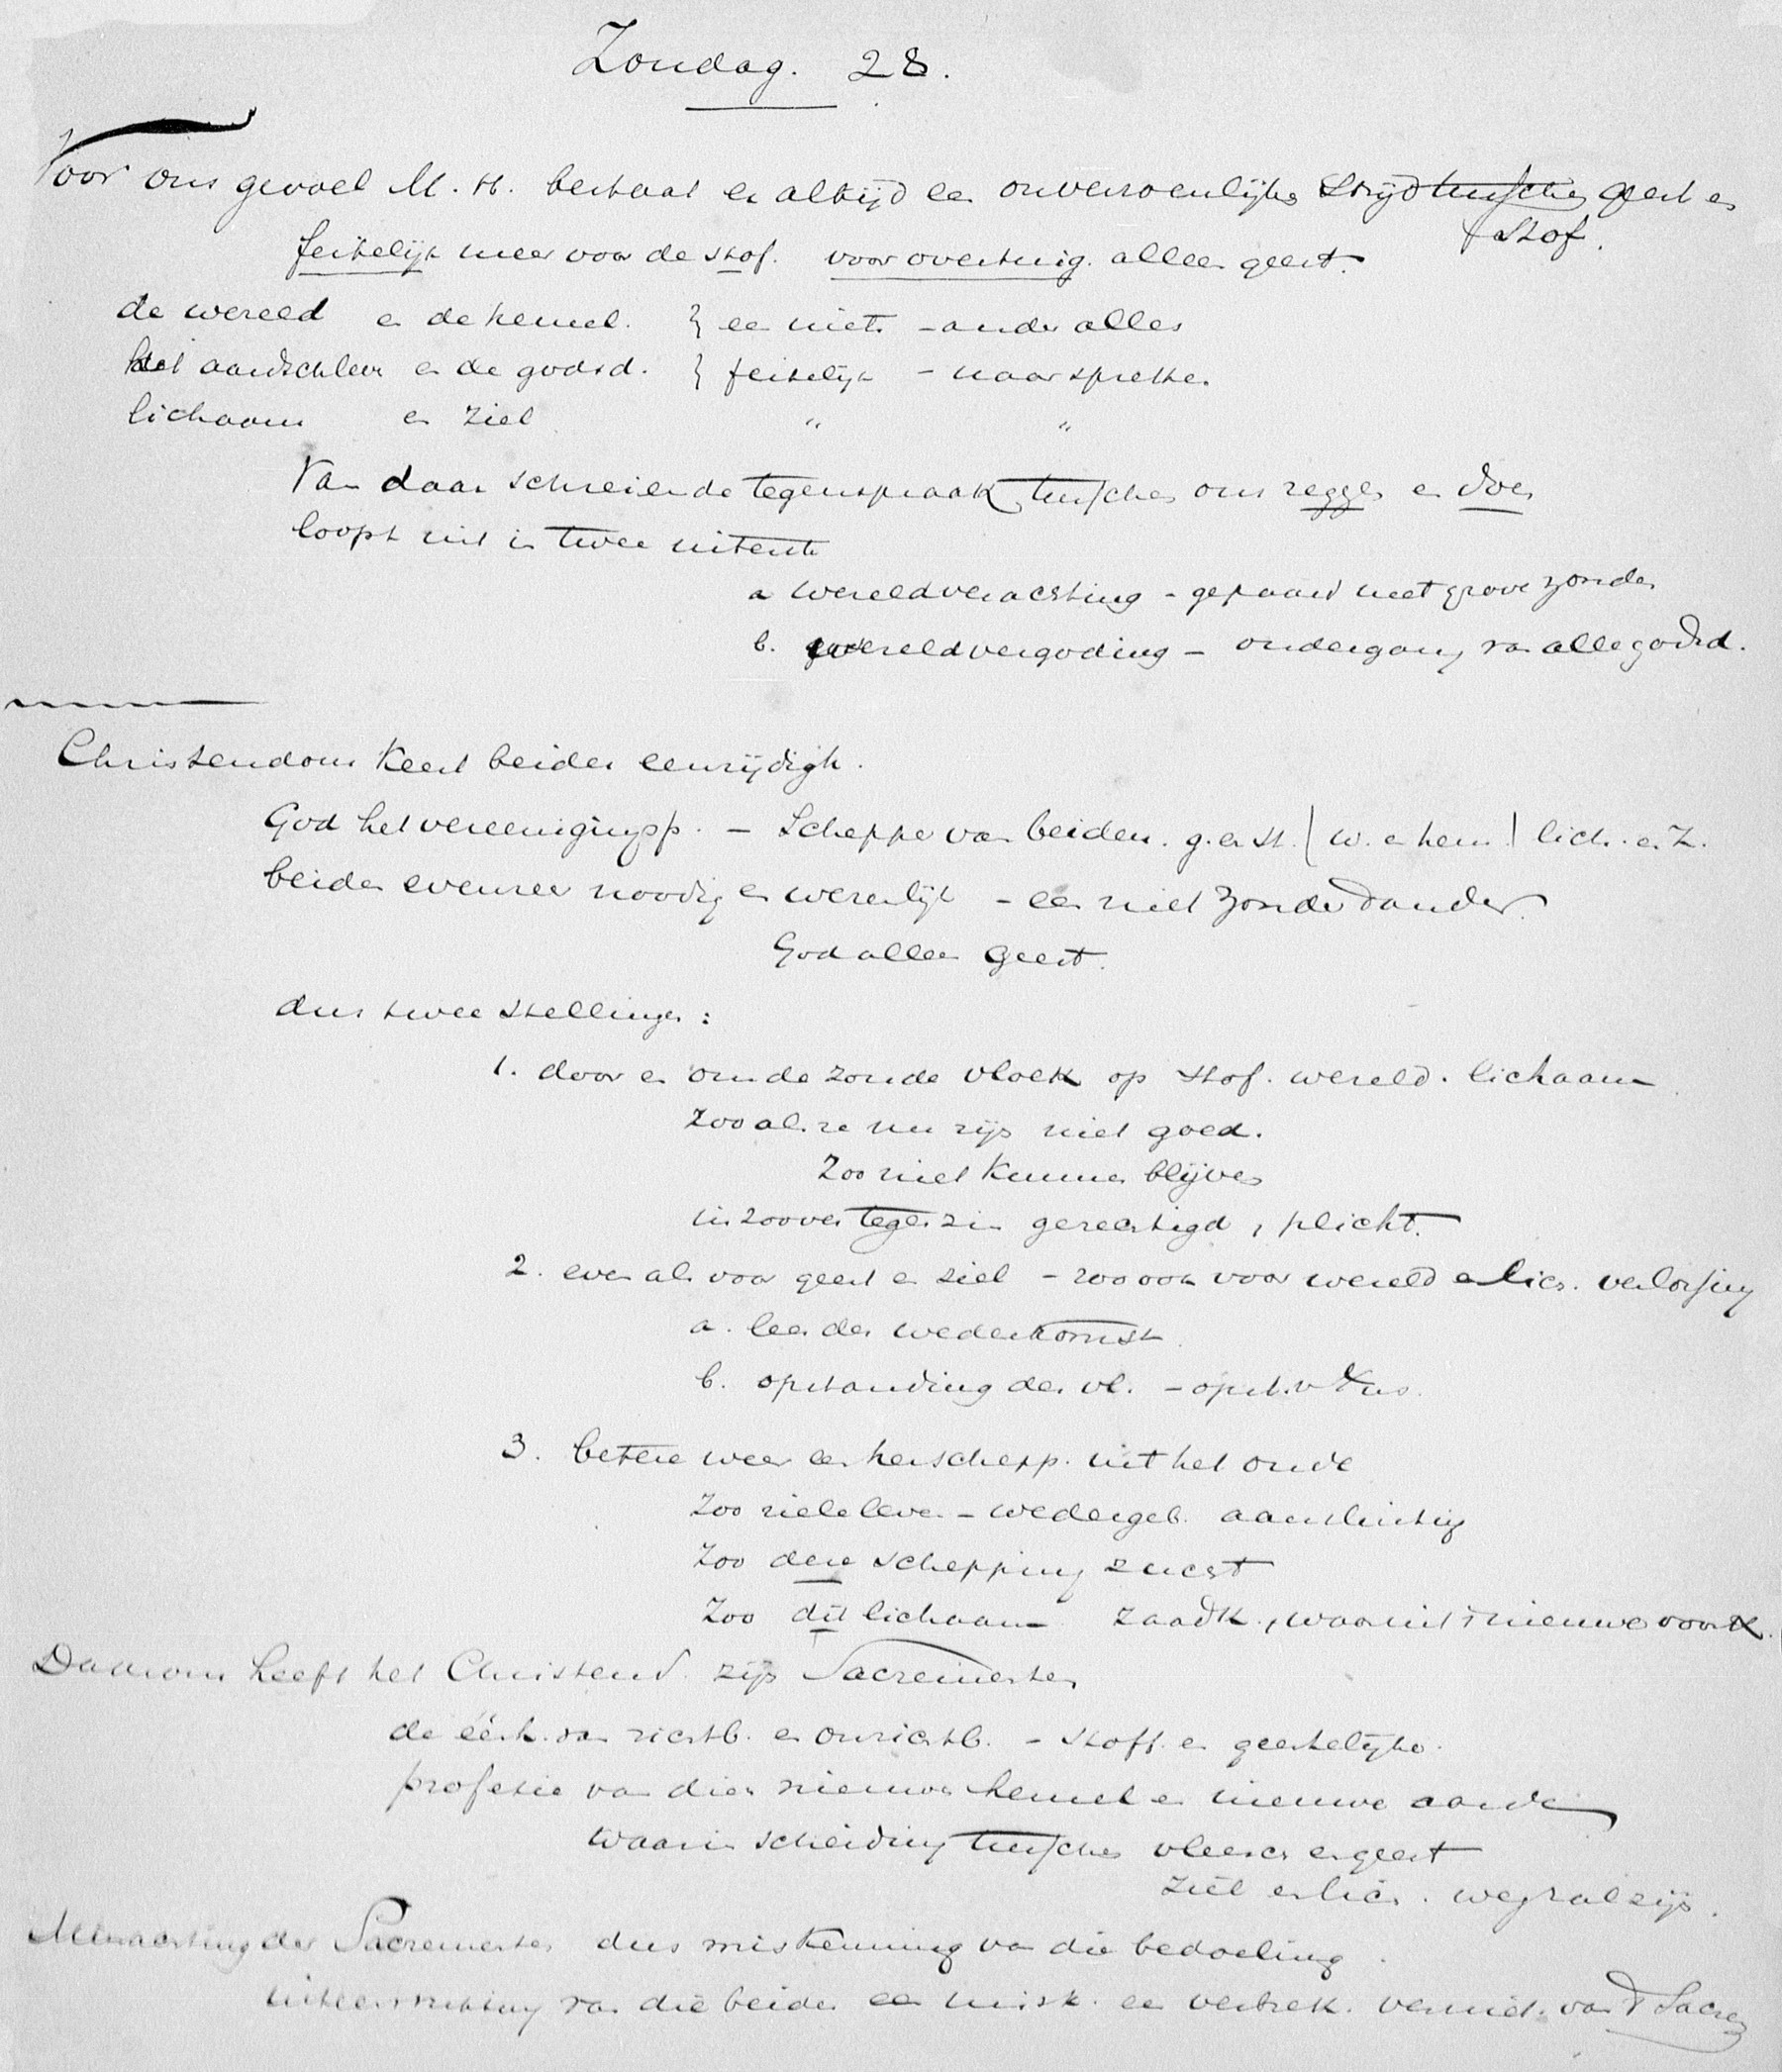 Zondag. 28.
Voor ons gevoel M. H. bestaat er altijd een onverzoenlijke strijd tusschen geest en
stof.
feitelijk meer voor de stof. voor overtuig. alleen geest.
de wereld en de hemel. } een niets - ander alles
het aardsch leven en de godsd. } feitelijk - naar spreken
lichaam en ziel " "
Van daar schreiende tegenspraak tusschen ons zeggen en doen
loopt uit in twee uiterste
a wereldverachting - gepaard met grove zonden
b. wereldvergoding - ondergang van alle godsd.
Christendom keert beider eenzijdigh.
God het vereenigingsp. - Schepper van beiden. g. en st. | w. en hem. | lich. en Z.
beiden evenzeer noodig en wezenlijk - een niet zonder d'ander.
God alleen Geest.
dus twee stellingen:
1. door en om de zonde vloek op stof. wereld. lichaam
zooals ze nu zijn niet goed.
Zoo niet kunnen blijven
in zoover tegenzin gerechtigd, plicht.
2. even als voor geest en ziel - zoo ook voor wereld en lich. verlossing
a. leer der wederkomst
b. opstanding des vl. - opst. v Xus.
3. betere weer een herschepp. uit het oude
Zoo zieleleven - wedergeb. aansluiting
Zoo deze schepping
Zoo dit lichaam zaadk., waaruit 't nieuwe voortk.
Daarom heeft het Christend. zijn Sacramenten
de éénh. van zichtb. en onzichtb. - stoff. en geestelijke.
profetie van dien nieuwen hemel en nieuwe aarde
waarin scheiding tusschen vleesch en geest
ziel en lich. weg zal zijn.
Minachting der Sacramenten dus miskenning van die bedoeling.
van die beiden een misk. een vertrek. van d Sacr